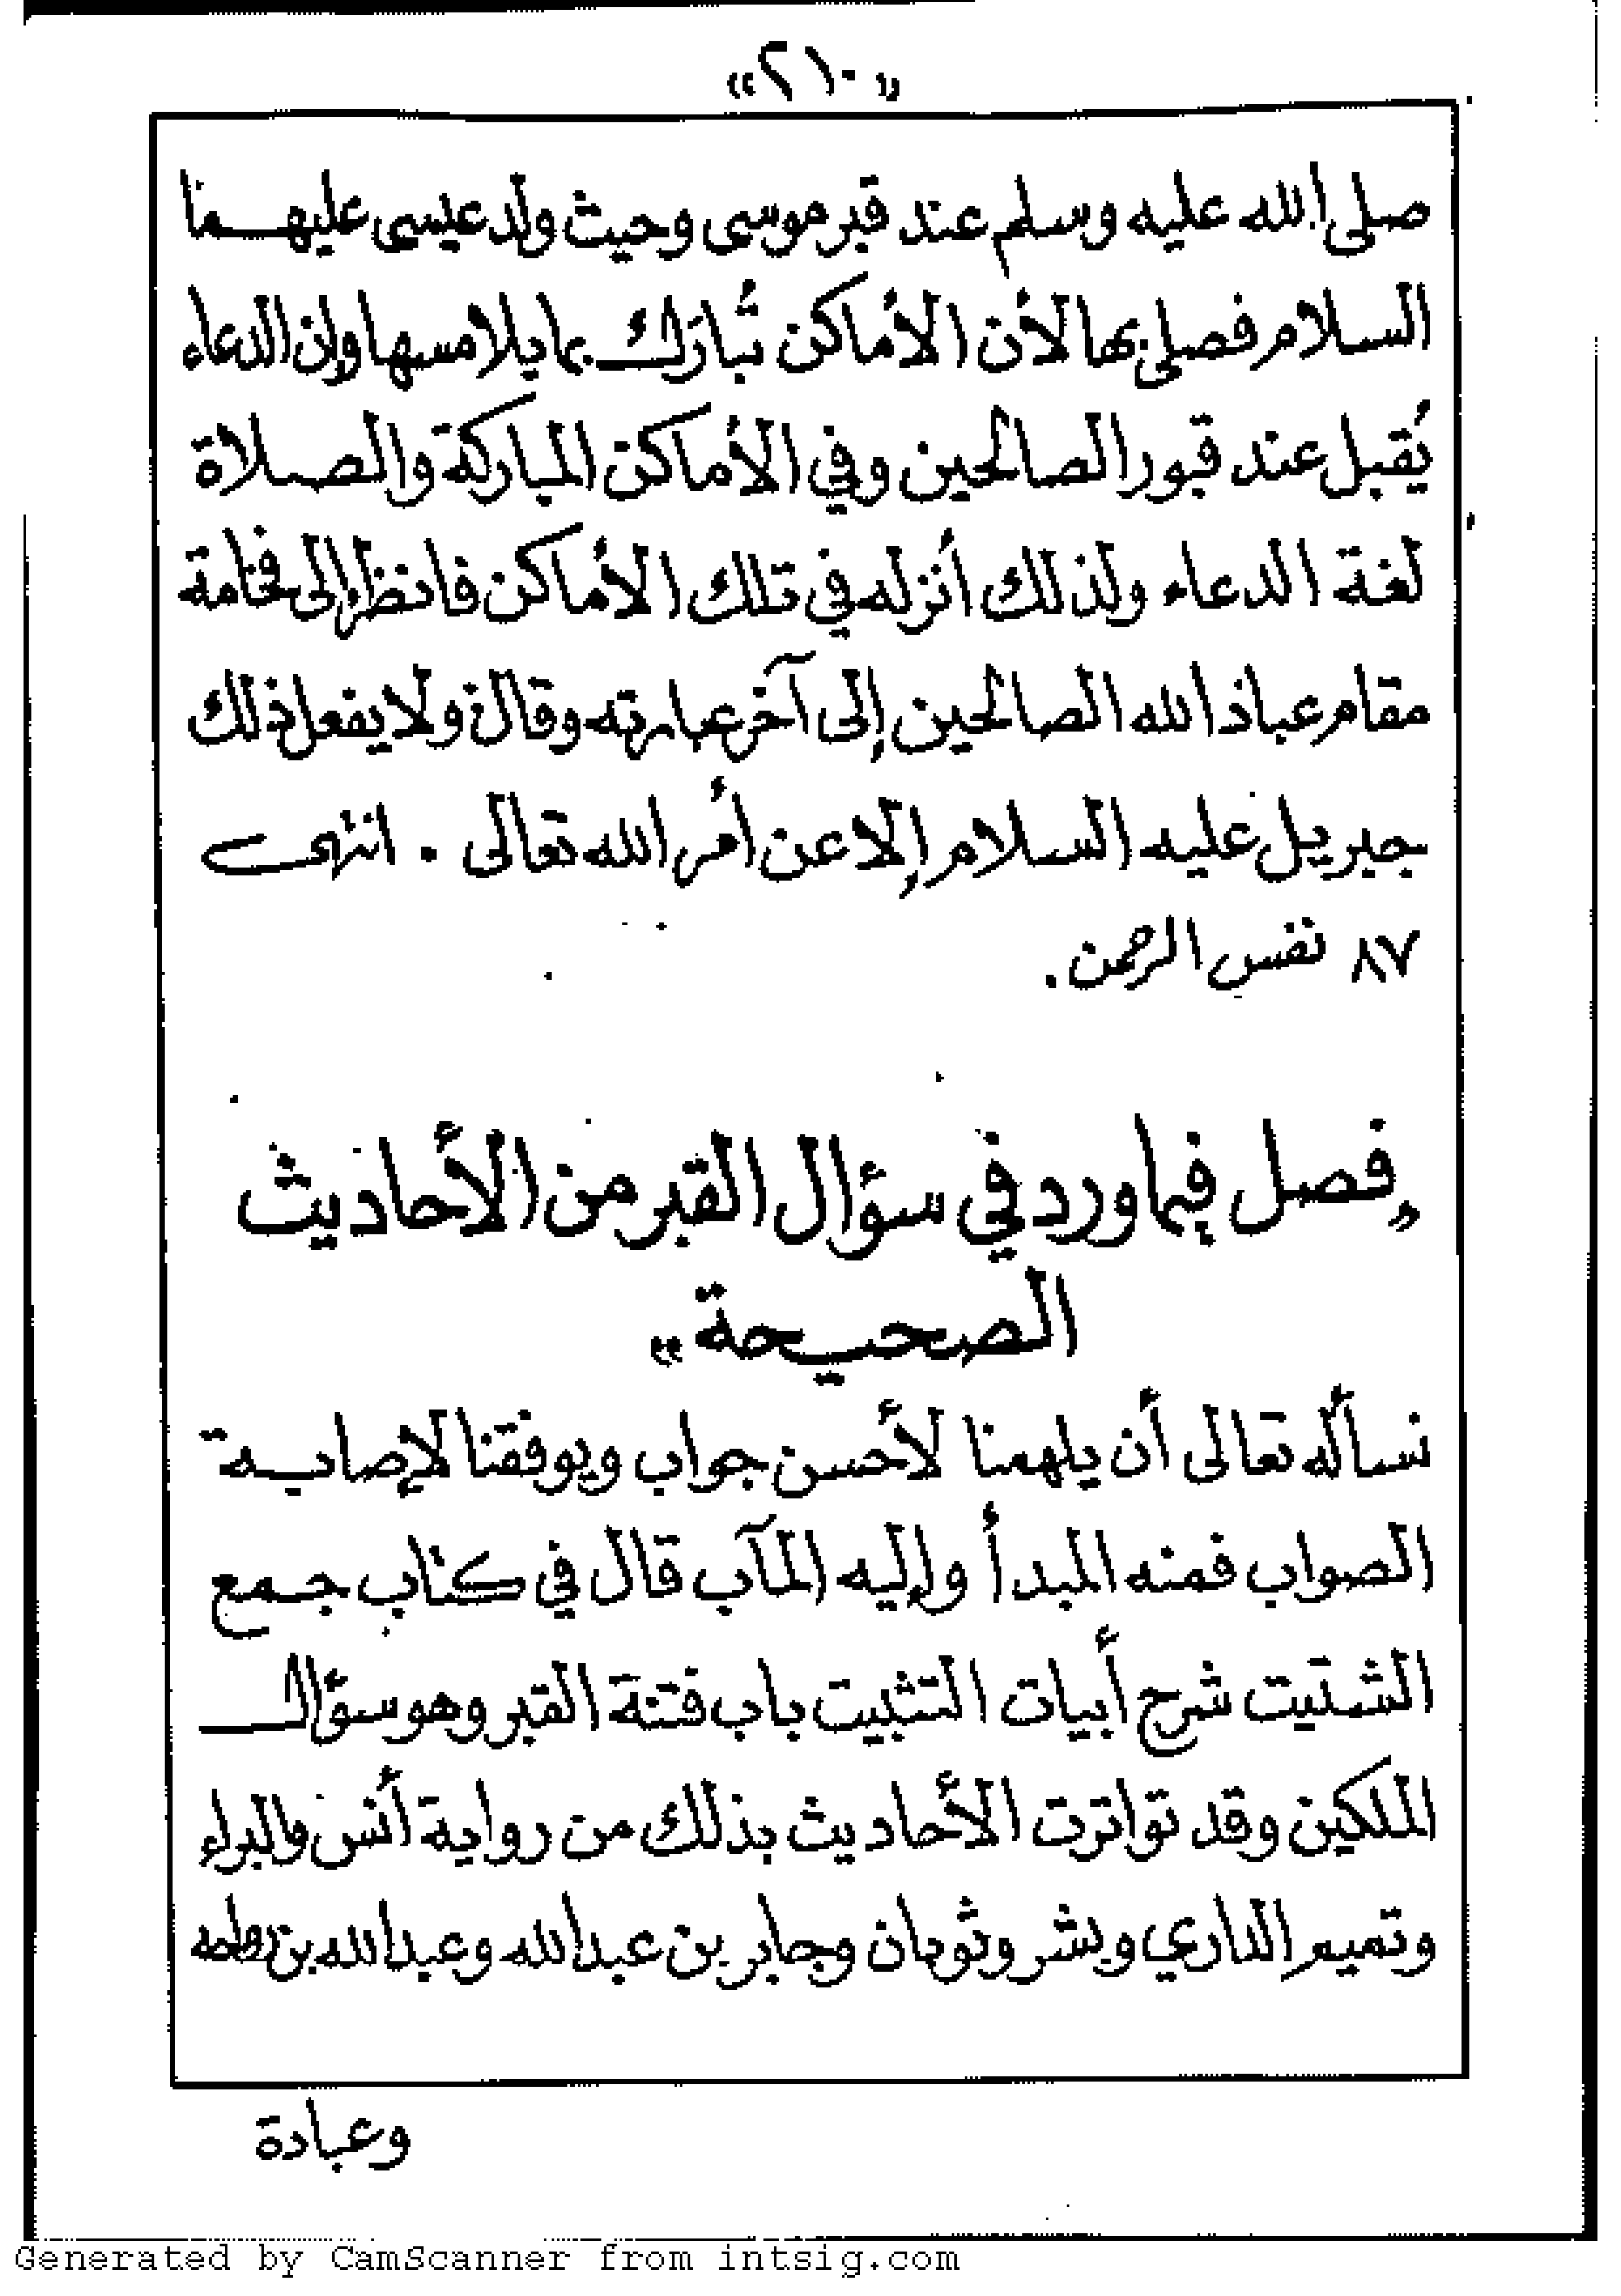 «٢١٠»
صلى الله عليه وسلم عند قبر موسى وحيث ولد عيسى عليهما
السلام فصلى بها لأن الأماكن تُبارَك بما يلامسها وإن الدعاء
يُقبل عند قبور الصالحين وفي الأماكن المباركة والصلاة
لغة الدعاء ولذلك أنزله في تلك الأماكن فانظر إلى فخامة
مقام عباد الله الصالحين إلى آخر عبارته وقال ولا يفعل ذلك
جبريل عليه السلام إلا عن أمر الله تعالى . انتهى
٨٧ نفس الرحمن .
«فصل فيما ورد في سؤال القبر من الأحاديث
الصحيحة»
نسأله تعالى أن يلهمنا لأحسن جواب ويوفقنا لإصابة
الصواب فمنه المبدأ وإليه المآب قال في كتاب جمع
الشتيت شرح أبيات التثبيت باب فتنة القبر وهو سؤال
الملكين وقد تواترت الأحاديث بذلك من رواية أنس والبراء
وتميم الداري وبشر وثوبان وجابر بن عبد الله وعبد الله بن رواحه
وعبادة
Generated by CamScanner from intsig.com